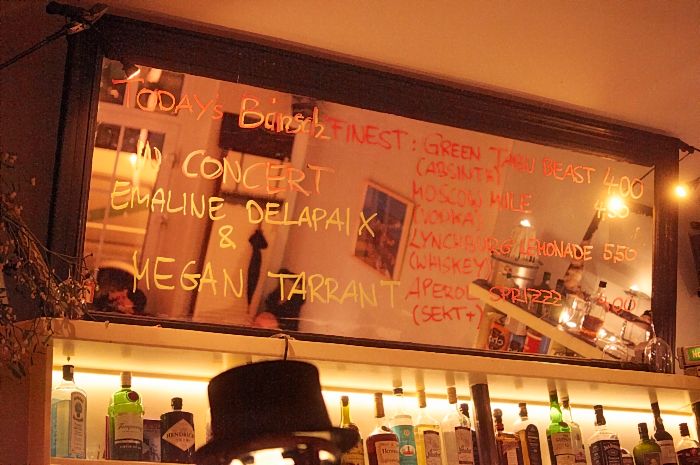 TODAY's Bärsch FINEST: GREEN TOWN BEAST 4.00
(ABSINTH)
MOSCOW MULE 4.50
(VODKA)
LYNCHBURG LEMONADE 5,50
(WHISKEY)
APEROL SPRIZZZ 4,00
(SEKT+)
IN CONCERT
EMALINE DELAPAIX
&
MEGAN TARRANT
HENDRICK'S